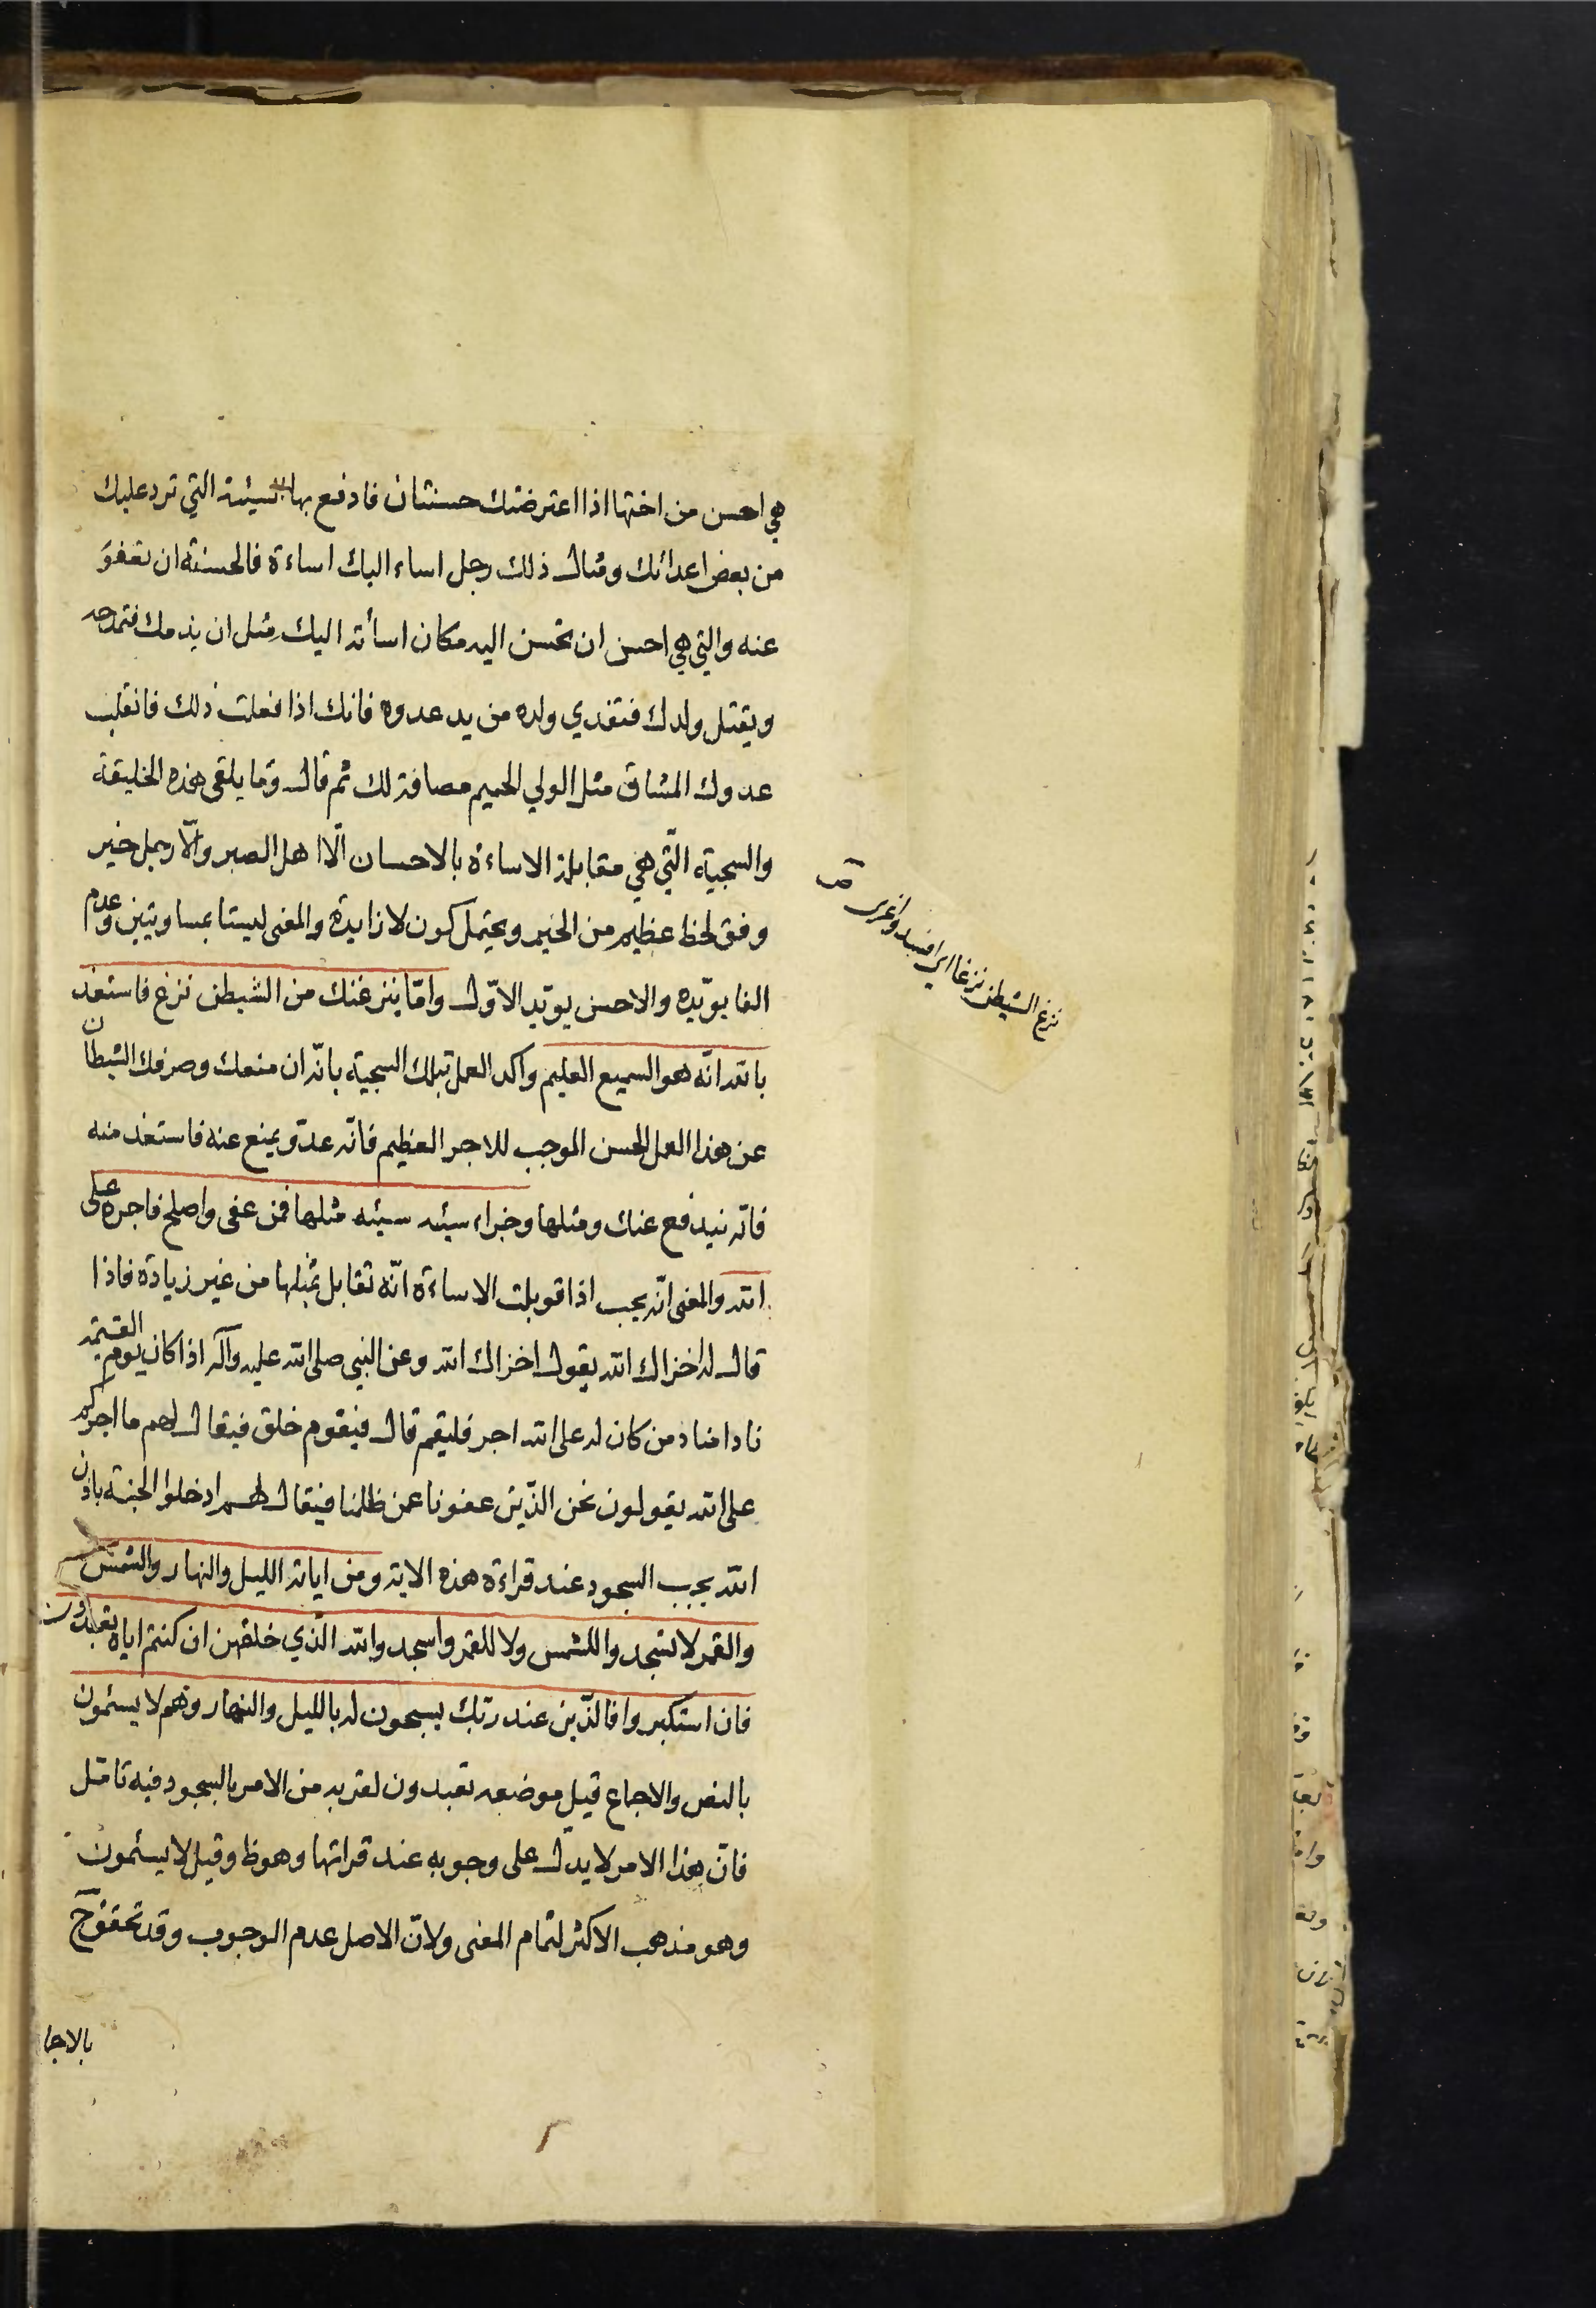 هي احسن من اختها اذا اعترضتك حسنتان فادفع بها السيئة التي ترد عليك
من بعض اعدائك ومثال ذلك رجل اساء اليك اساءة فالحسنة ان تعفوَ
عنه والتي هي احسن ان تحسن اليه مكان اسأته اليك مثل ان يذمك فتمدحه
ويقتل ولدك فتفدي ولده من يد عدوه فانك اذا فعلت ذلك فانقلب
عدوك المشاق مثل الولي الحميم مصافة لك ثم قال وما يلقى هذه الخليقة
والسجية الّتي هي مقابلة الاساءة بالاحسان الّا اهل الصبر والّا رجل خير
وفق لحظ عظيم من الخير ويحتمل كون لا زايدة والمعنى ليستا بمساويتين وعدم
الفا يويّده والاحسن يويّد الاوّل وامّا ينزغنك من الشيطن نزغ فاستعذ
بالله انّه هو السميع العليم واكد العمل بتلك السجية بانّه ان منعك وصرفك الشيطان
عن هذا العمل الحسن الموجب للاجر العظيم فانّه عدّو يمنع عنه فاستعذ منه
فانّه يندفع عنك ومثلها وجزاء سيئه سيئه مثلها فمن عفى واصلح فاجره على
الله والمعنى انّه يجب اذا قوبلت الاساءة انّه تقابل بمثلها من غير زيادة فاذا
قال له اخزاك الله يقول اخزاك الله وعن النبي صلى الله عليه وآله اذا كان يوم القيمة
نادا مناد من كان له على الله اجر فليقم قال فيقوم خلق فيقال لهم ما اجركم
على الله يقولون نحن الذّين عفونا عمن ظلمنا فيقال لهم ادخلوا الجنة باذن
الله يجب السجود عند قراءة هذه الاية ومن اياته الليل والنهار والشمس
والقمر لا تسجدوا للشمس ولا للقمر واسجدوا لله الّذي خلقهن ان كنتم اياه تعبدون
فان استكبروا فالذّين عند ربّك يسبحون له بالليل والنهار وهم لا يسئمون
بالنص والاجماع قيل موضعه تعبدون لقربه من الامر بالسجود فيه تامّل
فانّ هذا الامر لا يدل على وجوبه عند قراتها وهو ظ وقيل لا يسئمون
وهو مذهب الاكثر لتمام المعنى ولانّ الاصل عدم الوجوب وقد تحقق ح
بالاجا
نزغ الشيطن نزغا اي افسد واغرى
ص